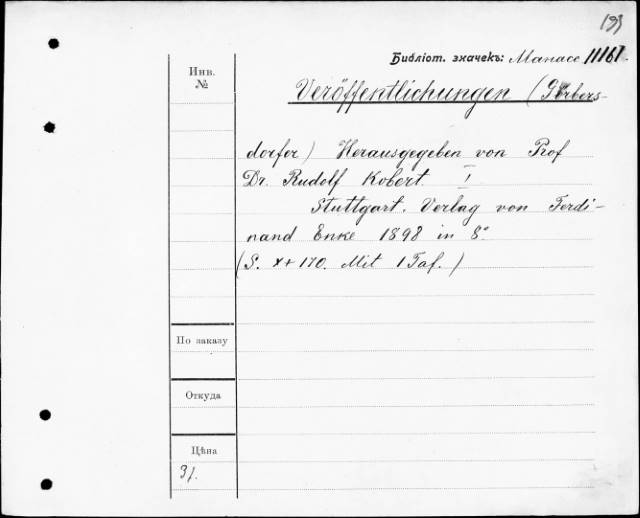 193
Библіот. значекъ: Manace 11161.
Инв.
№
Veröffentlichungen (Görbers-
dorfer) Herausgegeben von Prof
Dr. Rudolf Kobert. I
Stuttgart. Verlag von Ferdi-
nand Enke 1898 in 8°
(S. X + 170. Mit 1 Taf.)
По заказу
Откуда
Цѣна